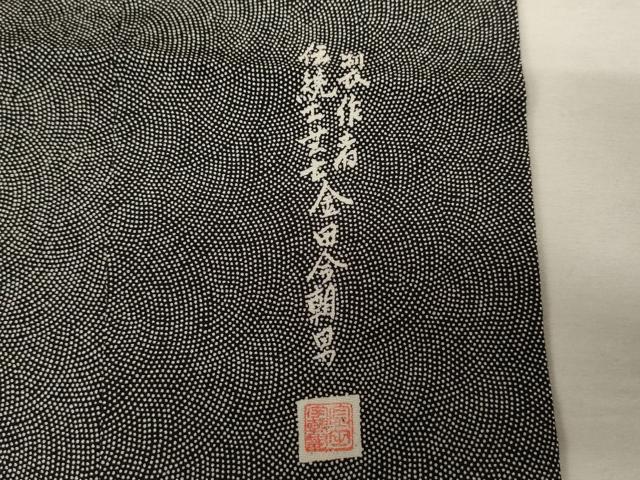 製作者
伝統工芸士金田今朝男